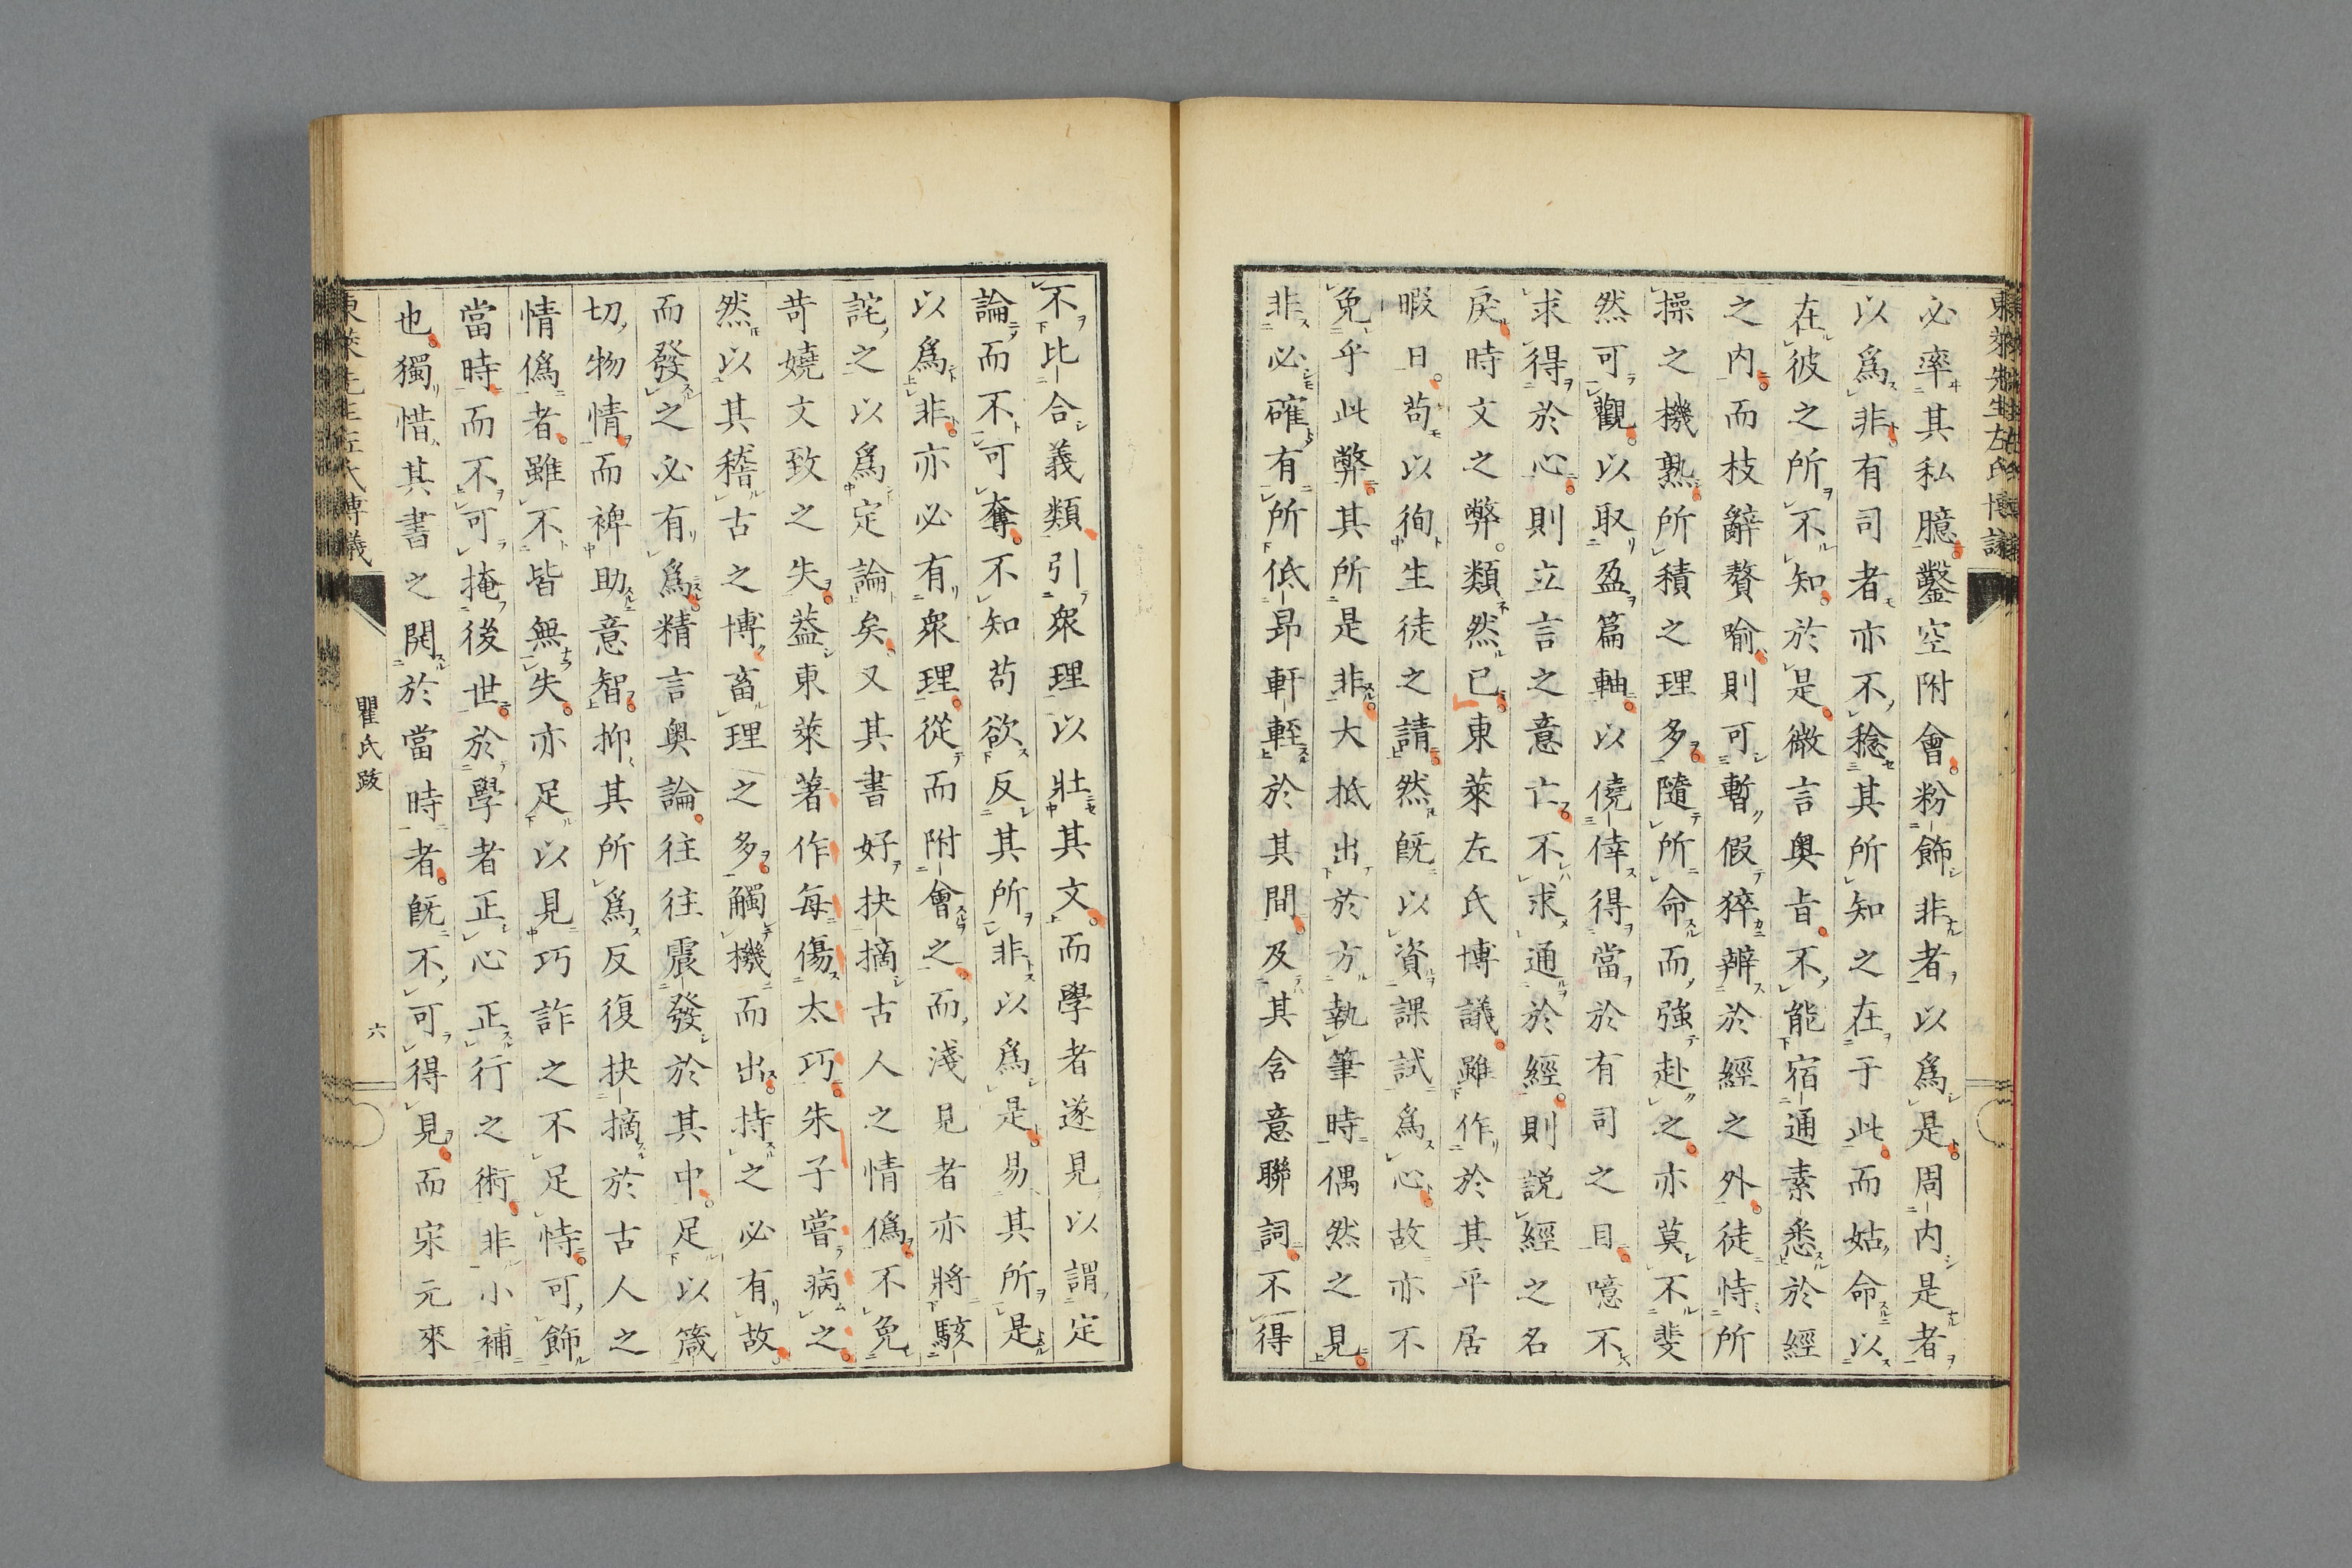 必率其私臆鑿空附會粉飾非者以爲是周内是者
以爲非有司者亦不稔其所知之在于此而姑命以
在彼之所不知於是微言奥旨不能宿通素悉於經
之内而枝辭贅喻則可暫假猝辨於經之外徒恃所
操之機熟所積之理多隨所命而強赴之亦莫不斐
然可觀以取盈篇軸以僥倖得當於有司之目噫不
求得於心則立言之意亡不求通於經則説經之名
戾時文之弊類然已東萊左氏博議雖作於其平居
暇日苟以徇生徒之請然既以資課試爲心故亦不
免乎此弊其所是非大抵出於方執筆時偶然之見
非必確有所低昂軒輊於其間及其含意聯詞不得
不比合義類引衆理以壯其文而學者遂見以謂定
論而不可奪不知苟欲反其所非以爲是易其所是
以爲非亦必有衆理從而附會之而淺見者亦將駭
詫之以爲定論矣又其書好抉摘古人之情僞不免
苛嬈文致之失葢東萊著作每傷太巧朱子嘗病之
然以其稽古之博畜理之多觸機而出持之必有故
而發之必有爲精言奥論往往震發於其中足以箴
切物情而裨助意智抑其所爲反復抉摘於古人之
情僞者雖不皆無失亦足以見巧詐之不足恃可飾
當時而不可掩後世於學者正心正行之術非小補
也獨惜其書之閼於當時者既不可得見而宋元來
東萊先生左氏博議
瞿氏跋
六